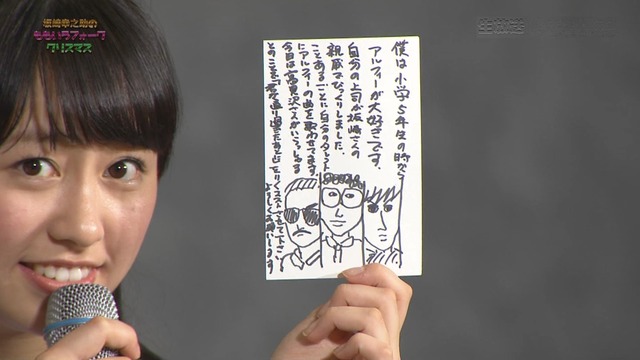 坂崎幸之助の
ももいろフォーク
クリスマス
僕は小学5年生の時から
アルフィーが大好きです、
自分の上司が坂崎さんの
親戚でびっくりしました、
ことあるごとに自分のタレント
にアルフィーの曲を歌わせてます。
今日は高見沢さんがいらっしゃる
とのことで「君が通り過ぎたあとに」をリクエストさせて下さい!
よろしくお願いします